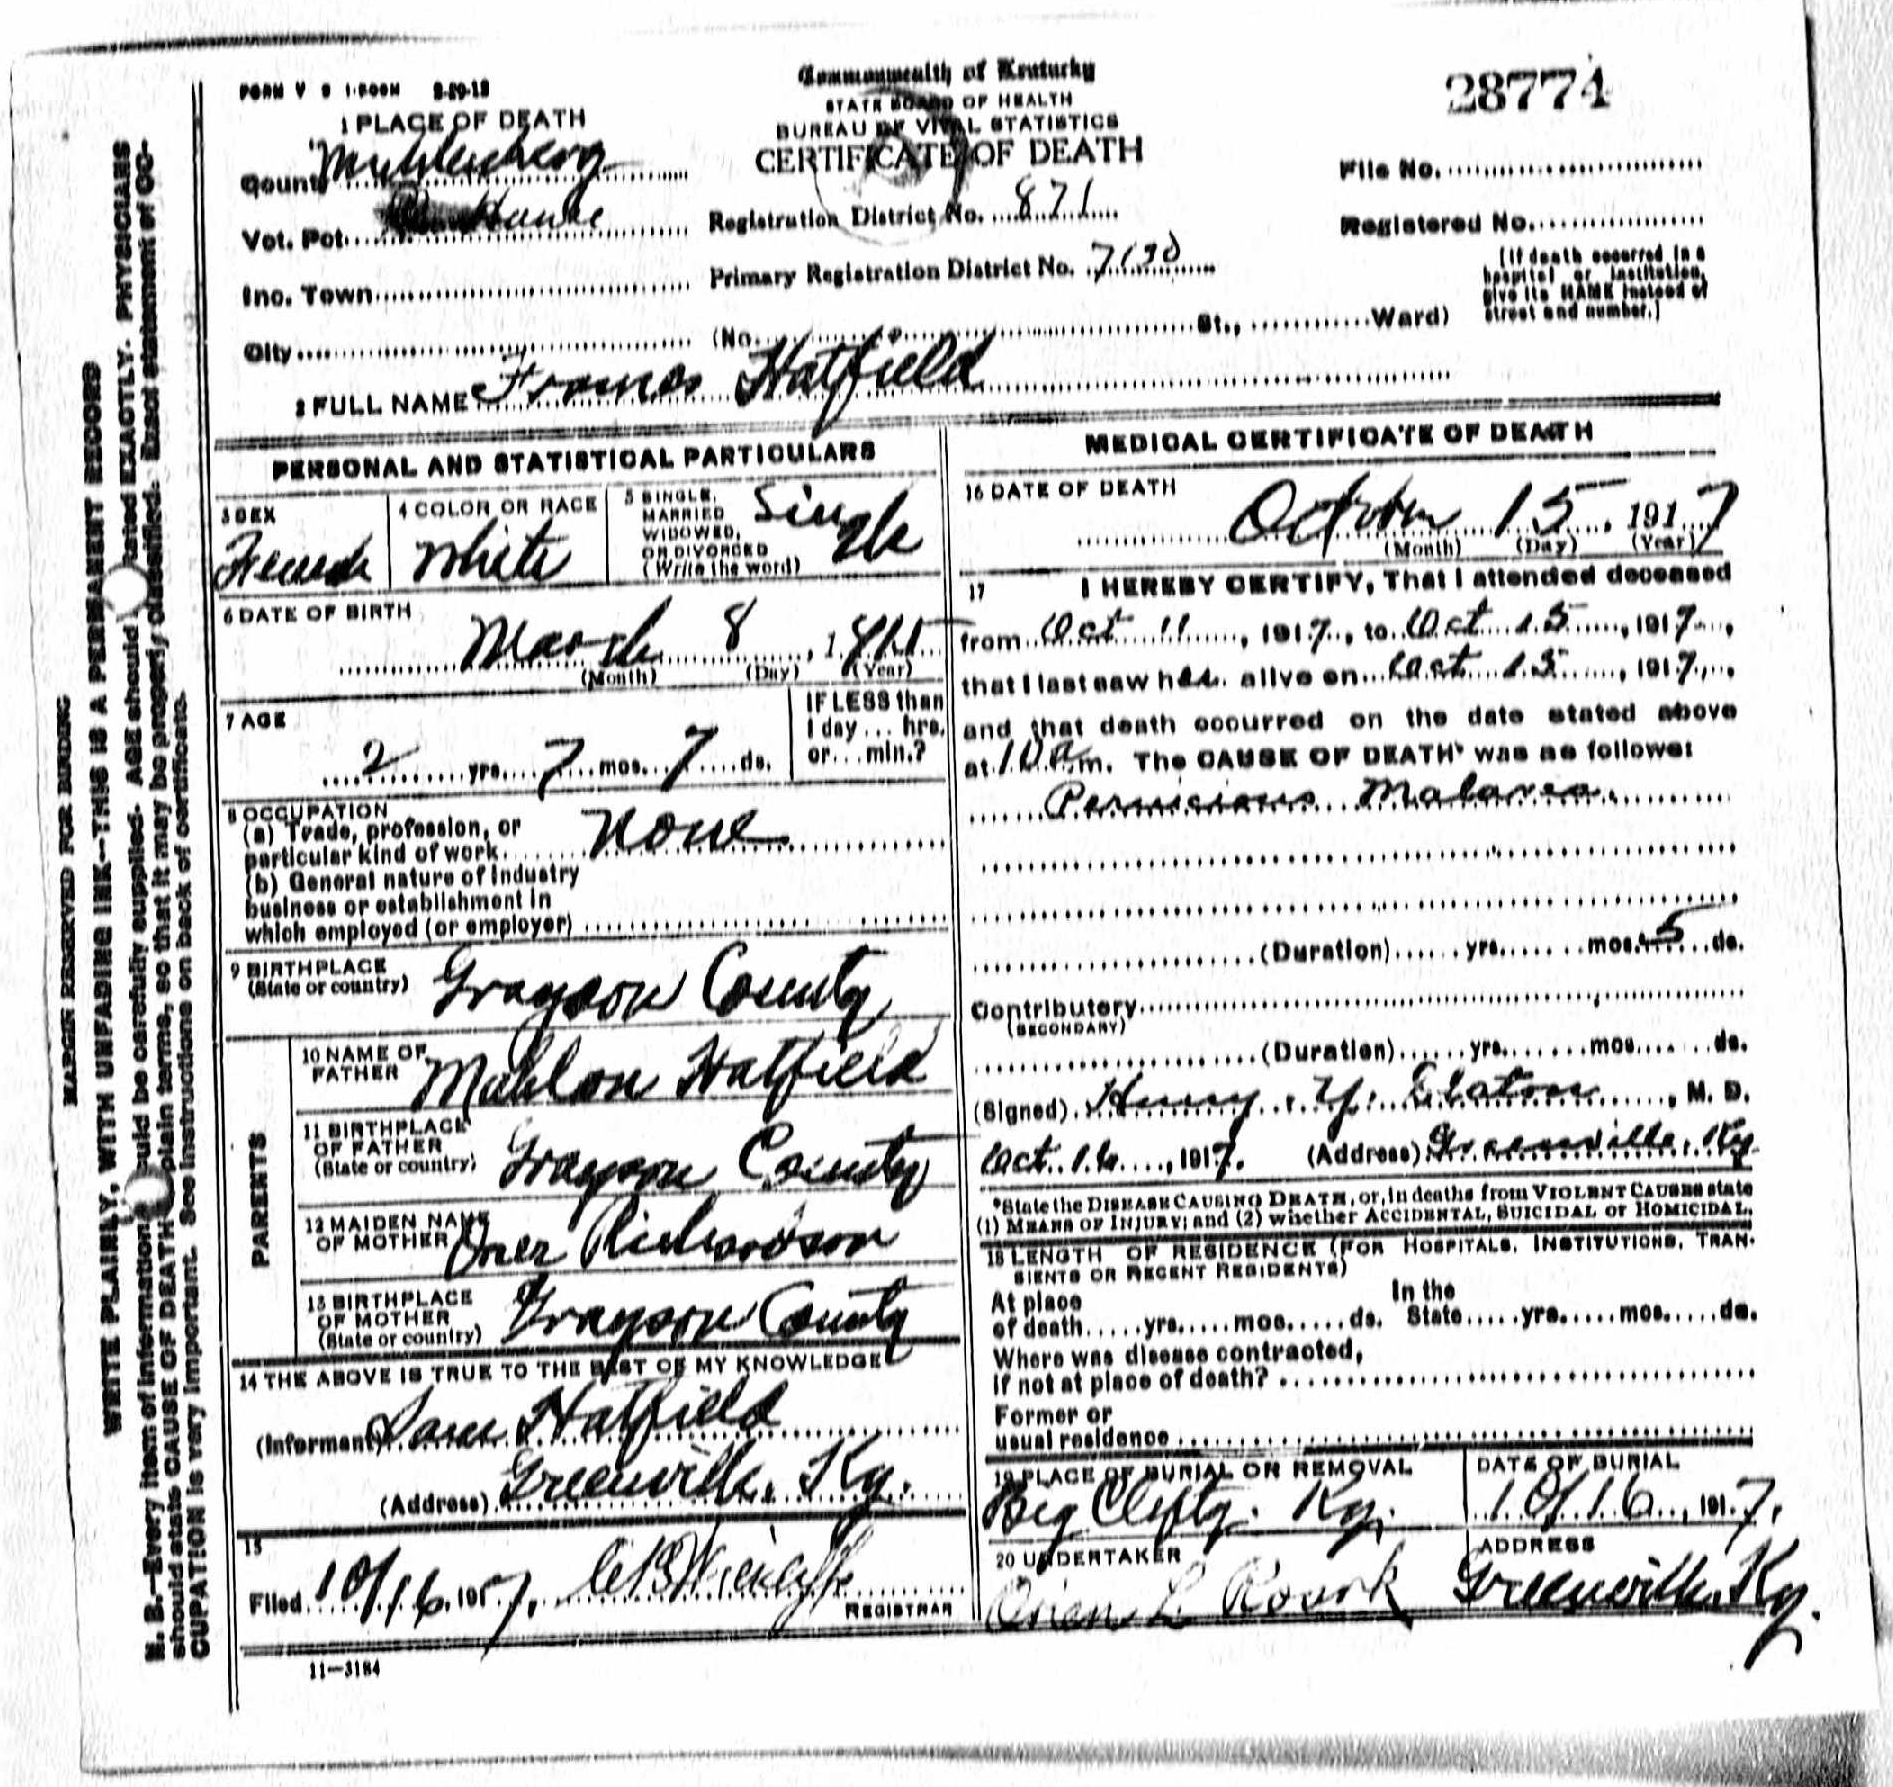 FORM V S 1-500M 2-29-12
Commonwealth of Kentucky
STATE BOARD OF HEALTH
BUREAU OF VITAL STATISTICS
CERTIFICATE OF DEATH
28774
1 PLACE OF DEATH
County Muhlenberg
Vot. Pct.
Inc. Town
City
Registration District No. 871
Primary Registration District No. 7130
(No. St., Ward)
File No.
Registered No.
(If death occurred in a
hospital or institution,
give its NAME instead of
street and number.)
2 FULL NAME Frances Hatfield
PERSONAL AND STATISTICAL PARTICULARS
3 SEX
Female
4 COLOR OR RACE
White
5 SINGLE,
MARRIED
WIDOWED,
OR DIVORCED
(Write the word)
Single
6 DATE OF BIRTH
March 8, 1
(Month) (Day) (Year)
7 AGE
2 yrs. 7 mos. 7 ds.
IF LESS than
1 day ... hrs.
or ... min.?
8 OCCUPATION
(a) Trade, profession, or
particular kind of work None
(b) General nature of industry
business or establishment in
which employed (or employer)
9 BIRTHPLACE
(State or country) Grayson County
PARENTS
10 NAME OF
FATHER Mahlon Hatfield
11 BIRTHPLACE
OF FATHER
(State or country) Grayson County
12 MAIDEN NAME
OF MOTHER Oner Richardson
13 BIRTHPLACE
OF MOTHER
(State or country) Grayson County
14 THE ABOVE IS TRUE TO THE BEST OF MY KNOWLEDGE
(Informant) Sam Hatfield
(Address) Greenville, Ky.
15
Filed 10/16, 1917.
REGISTRAR
11-3184
MEDICAL CERTIFICATE OF DEATH
16 DATE OF DEATH
October 15, 1917
(Month) (Day) (Year)
17 I HEREBY CERTIFY, That I attended deceased
from Oct 11, 1917, to Oct 15, 1917,
that I last saw her alive on Oct 15, 1917,
and that death occurred on the date stated above
at 10 a m. The CAUSE OF DEATH* was as follows:
Pernicious Malaria
(Duration) yrs. mos. 5 ds.
Contributory
(SECONDARY)
(Duration) yrs. mos. ds.
(Signed) Henry Y. Slaton, M. D.
Oct. 16, 1917. (Address) Greenville, Ky
*State the DISEASE CAUSING DEATH, or, in deaths from VIOLENT CAUSES state
(1) MEANS OF INJURY; and (2) whether ACCIDENTAL, SUICIDAL or HOMICIDAL.
18 LENGTH OF RESIDENCE (FOR HOSPITALS, INSTITUTIONS, TRAN-
SIENTS OR RECENT RESIDENTS)
At place
of death yrs. mos. ds.
In the
State yrs. mos. ds.
Where was disease contracted,
if not at place of death?
Former or
usual residence
19 PLACE OF BURIAL OR REMOVAL
Big Clifty, Ky.
DATE OF BURIAL
10/16, 1917.
20 UNDERTAKER
Orien L Roark
ADDRESS
Greenville, Ky.
MARGIN RESERVED FOR BINDING
WRITE PLAINLY, WITH UNFADING INK--THIS IS A PERMANENT RECORD
N. B.--Every item of information should be carefully supplied. AGE should stated EXACTLY. PHYSICIANS
should state CAUSE OF DEATH plain terms, so that it may be properly classified. Exact statement of OC-
CUPATION is very important. See instructions on back of certificate.